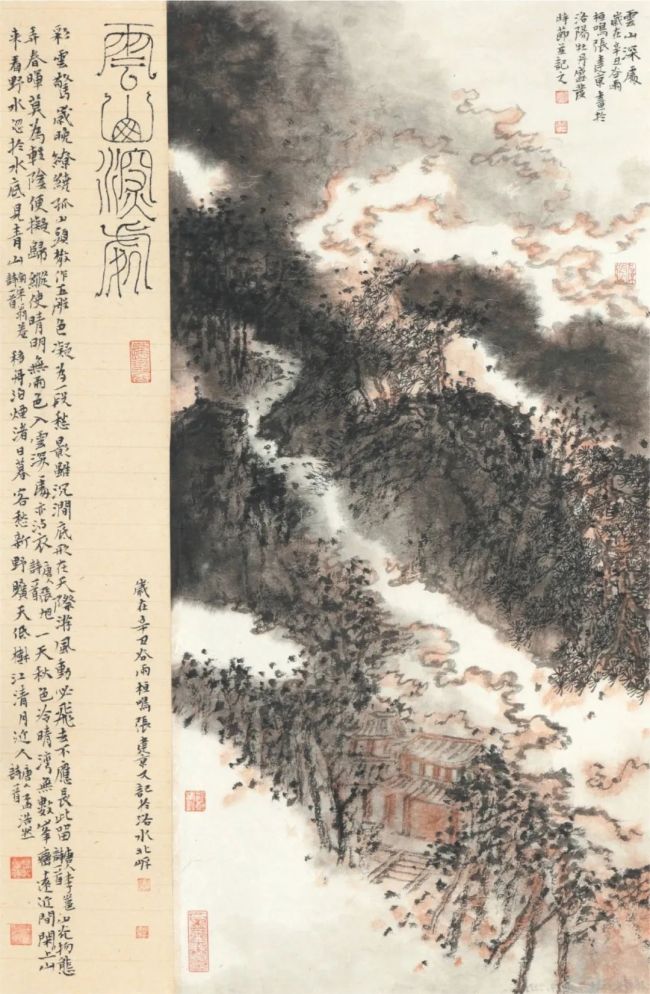 雲山深處
歲在辛丑谷雨
桓鳴張建京畫於
洛陽牡丹盛發
時節並記之
雲山深處
彩雲驚歲晚繚繞孤山頭散作五般色凝為一段愁影雖沉澗底形在天際游風動必飛去不應長此留唐人李邕詩一首山光物態
弄春暉莫為輕陰便擬歸縱使晴明無雨色入雲深處亦沾衣唐人張旭詩一首一天秋色冷晴灣無數峯巒遠近間閑上山
來看野水忽於水底見青山南宋翁卷詩一首移舟泊煙渚日暮客愁新野曠天低樹江清月近人唐孟浩然詩一首
歲在辛丑谷雨桓鳴張建京又記於洛水北岸